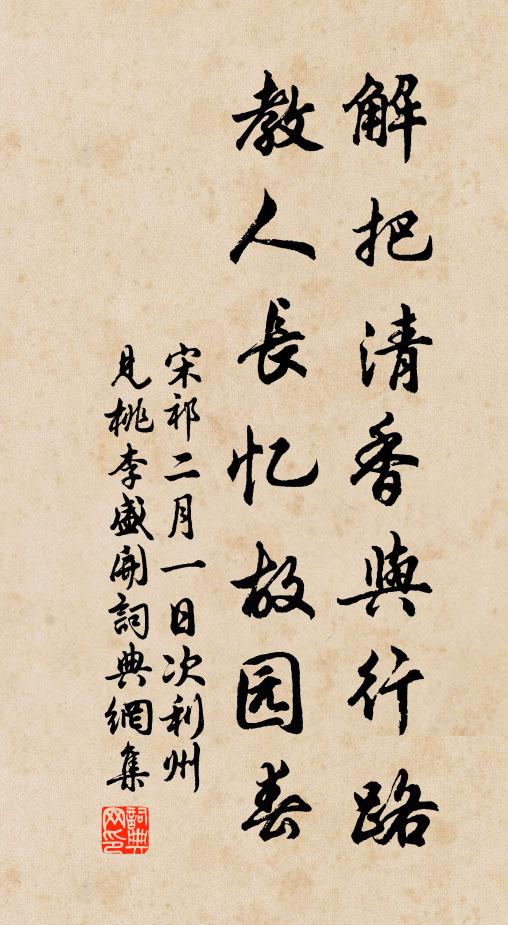 解把清香與行路
教人長忆故园春
宋祁二月一日次利州
見桃李盛開詞典網集
詞典网印